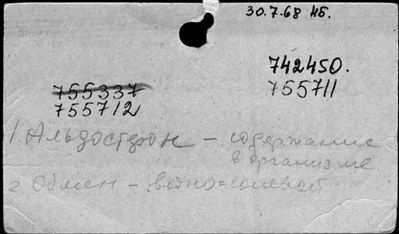 30.7.68 нб.
742450.
755337 755711
755712
1. Альдостерон – содержание
в организме
2. Обмен – водно=солевой